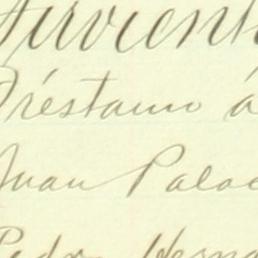 Sirvient
Préstamo á
Juan Palac
Pedro Herna